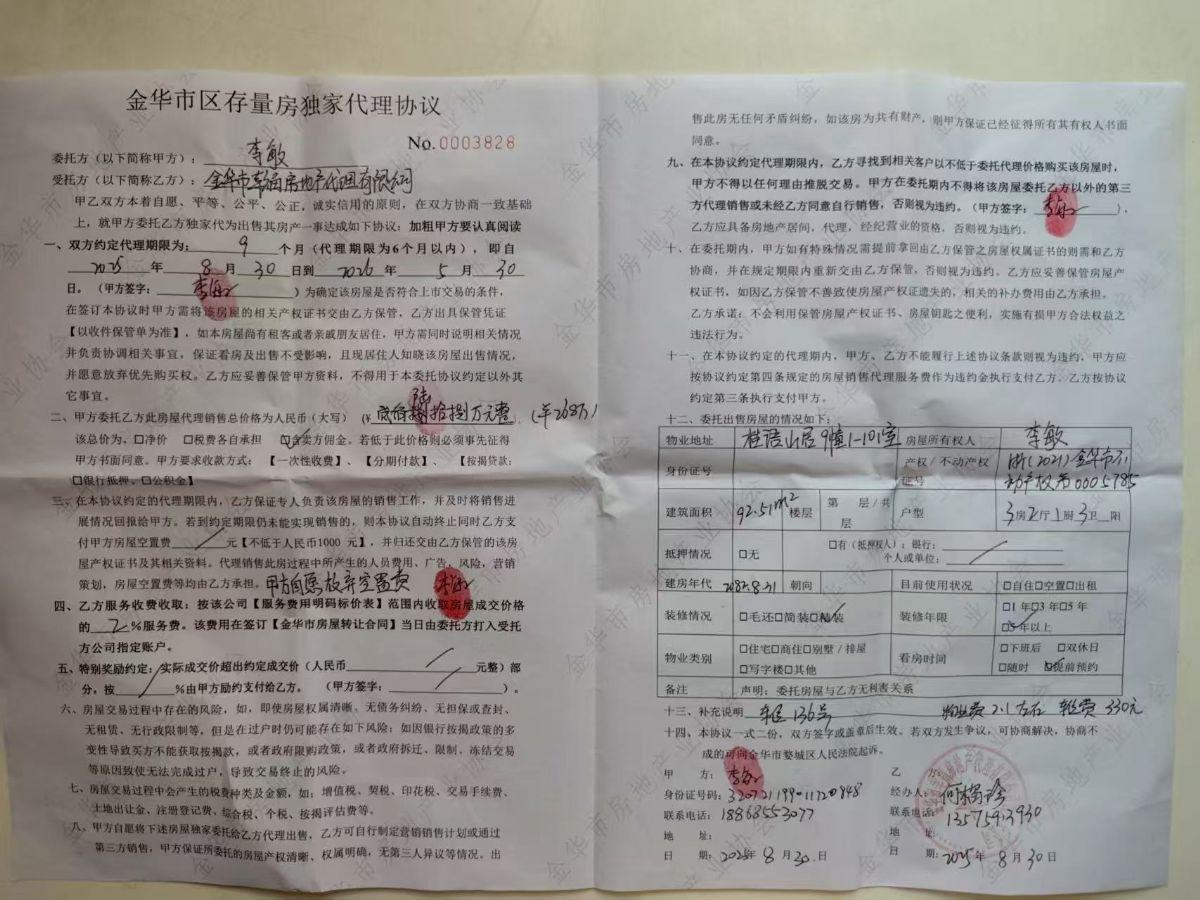 金华市区存量房独家代理协议
No.0003828
委托方（以下简称甲方）：李敏
受托方（以下简称乙方）：金华市幸福房地产代理有限公司
甲乙双方本着自愿、平等、公平、公正，诚实信用的原则，在双方协商一致基础
上，就甲方委托乙方独家代为出售其房产一事达成如下协议：加粗甲方要认真阅读
一、双方约定代理期限为：9个月（代理期限为6个月以内），即自
2025年8月30日到2026年5月30
日。（甲方签字：李敏）为确定该房屋是否符合上市交易的条件，
在签订本协议时甲方需将该房屋的相关产权证书交由乙方保管，乙方出具保管凭证
【以收件保管单为准】，如本房屋尚有租客或者亲戚朋友居住，甲方需同时说明相关情况
并负责协调相关事宜，保证看房及出售不受影响，且现居住人知晓该房屋出售情况，
并愿意放弃优先购买权。乙方应妥善保管甲方资料，不得用于本委托协议约定以外其
它事宜。
二、甲方委托乙方此房屋代理销售总价格为人民币（大写）（¥贰佰陆拾捌万元整（￥268万）
该总价为、口净价 口税费各自承担 ☑含卖方佣金。若低于此价格则必须事先征得
甲方书面同意。甲方要求收款方式：【一次性收费】、【分期付款】、【按揭贷款：
口银行抵押、口公积金】
三、在本协议约定的代理期限内，乙方保证专人负责该房屋的销售工作，并及时将销售进
展情况回报给甲方。若到约定期限仍未能实现销售的，则本协议自动终止同时乙方支
付甲方房屋空置费/元【不低于人民币1000元】，并归还交由乙方保管的该房
屋产权证书及其相关资料。代理销售此房过程中所产生的人员费用、广告、风险，营销
策划，房屋空置费等均由乙方承担。甲方自愿放弃空置费 李敏
四、乙方服务收费收取：按该公司【服务费用明码标价表】范围内收取房屋成交价格
的2%服务费。该费用在签订【金华市房屋转让合同】当日由委托方打入受托
方公司指定账户。
五、特别奖励约定：实际成交价超出约定成交价（人民币/元整）部
分，按/%由甲方励约支付给乙方。（甲方签字：/）。
六、房屋交易过程中存在的风险，如，即使房屋权属清晰、无债务纠纷、无担保或查封、
无租赁、无行政限制等，但是在过户时仍可能存在如下风险：如因银行按揭政策的多
变性导致买方不能获取按揭款，或者政府限购政策，或者政府拆迁、限制、冻结交易
等原因致使无法完成过户，导致交易终止的风险。
七、房屋交易过程中会产生的税费种类及金额，如：增值税、契税、印花税、交易手续费、
土地出让金、注册登记费、综合税、个税、按揭评估费等。
八、甲方自愿将下述房屋独家委托给乙方代理出售，乙方可自行制定营销销售计划或通过
第三方销售，甲方保证所委托的房屋产权清晰、权属明确，无第三人异议等情况。出
售此房无任何矛盾纠纷，如该房为共有财产，则甲方保证已经征得所有其有权人书面
同意。
九、在本协议约定代理期限内，乙方寻找到相关客户以不低于委托代理价格购买该房屋时，
甲方不得以任何理由推脱交易。甲方在委托期内不得将该房屋委托乙方以外的第三
方代理销售或未经乙方同意自行销售，否则视为违约。（甲方签字：李敏），
乙方应具备房地产居间，代理，经纪营业的资格，否则视为违约。
十、在委托期内，甲方如有特殊情况需提前拿回由乙方保管之房屋权属证书的则需和乙方
协商，并在规定期限内重新交由乙方保管，否则视为违约。乙方应妥善保管房屋产
权证书，如因乙方保管不善致使房屋产权证遗失的，相关的补办费用由乙方承担。
乙方承诺：不会利用保管房屋产权证书、房屋钥匙之便利，实施有损甲方合法权益之
违法行为。
十一、在本协议约定的代理期内，甲方、乙方不能履行上述协议条款则视为违约，甲方应
按协议约定第四条规定的房屋销售代理服务费作为违约金执行支付乙方。乙方按协议
约定第三条执行支付甲方。
十二、委托出售房屋的情况如下：
物业地址 桂语山居9幢1-101室 房屋所有权人 李敏
身份证号 产权/不动产权证号 浙(2021)金华市不动产权第0005785
建筑面积 92.51m² 楼层 第 层/共 层 户型 3房2厅1厨3卫 阳
抵押情况 口无 口有（抵押权人）：银行： 个人或单位：/
建房年代 朝向 目前使用状况 口自住口空置口出租
装修情况 口毛还口简装☑精装 装修年限 口1年口3年口5年
☑5年以上
物业类别 口住宅口商住口别墅/排屋 口写字楼口其他 看房时间 口下班后 口双休日
口随时 ☑提前预约
备注 声明：委托房屋与乙方无利害关系
十三、补充说明 车位136号 物业费2.1左右 车位费330元
十四、本协议一式二份，双方签字或盖章后生效。若双方发生争议，可协商解决，协商不
成的可向金华市婺城区人民法院起诉。
甲 方：李敏
身份证号码：320721199011720848
联系电话：18868553077
地 址：
日 期：2025年8月30日
乙 方：
经办人：
联系电话：13575913930
地 址：
日 期：2025年8月30日